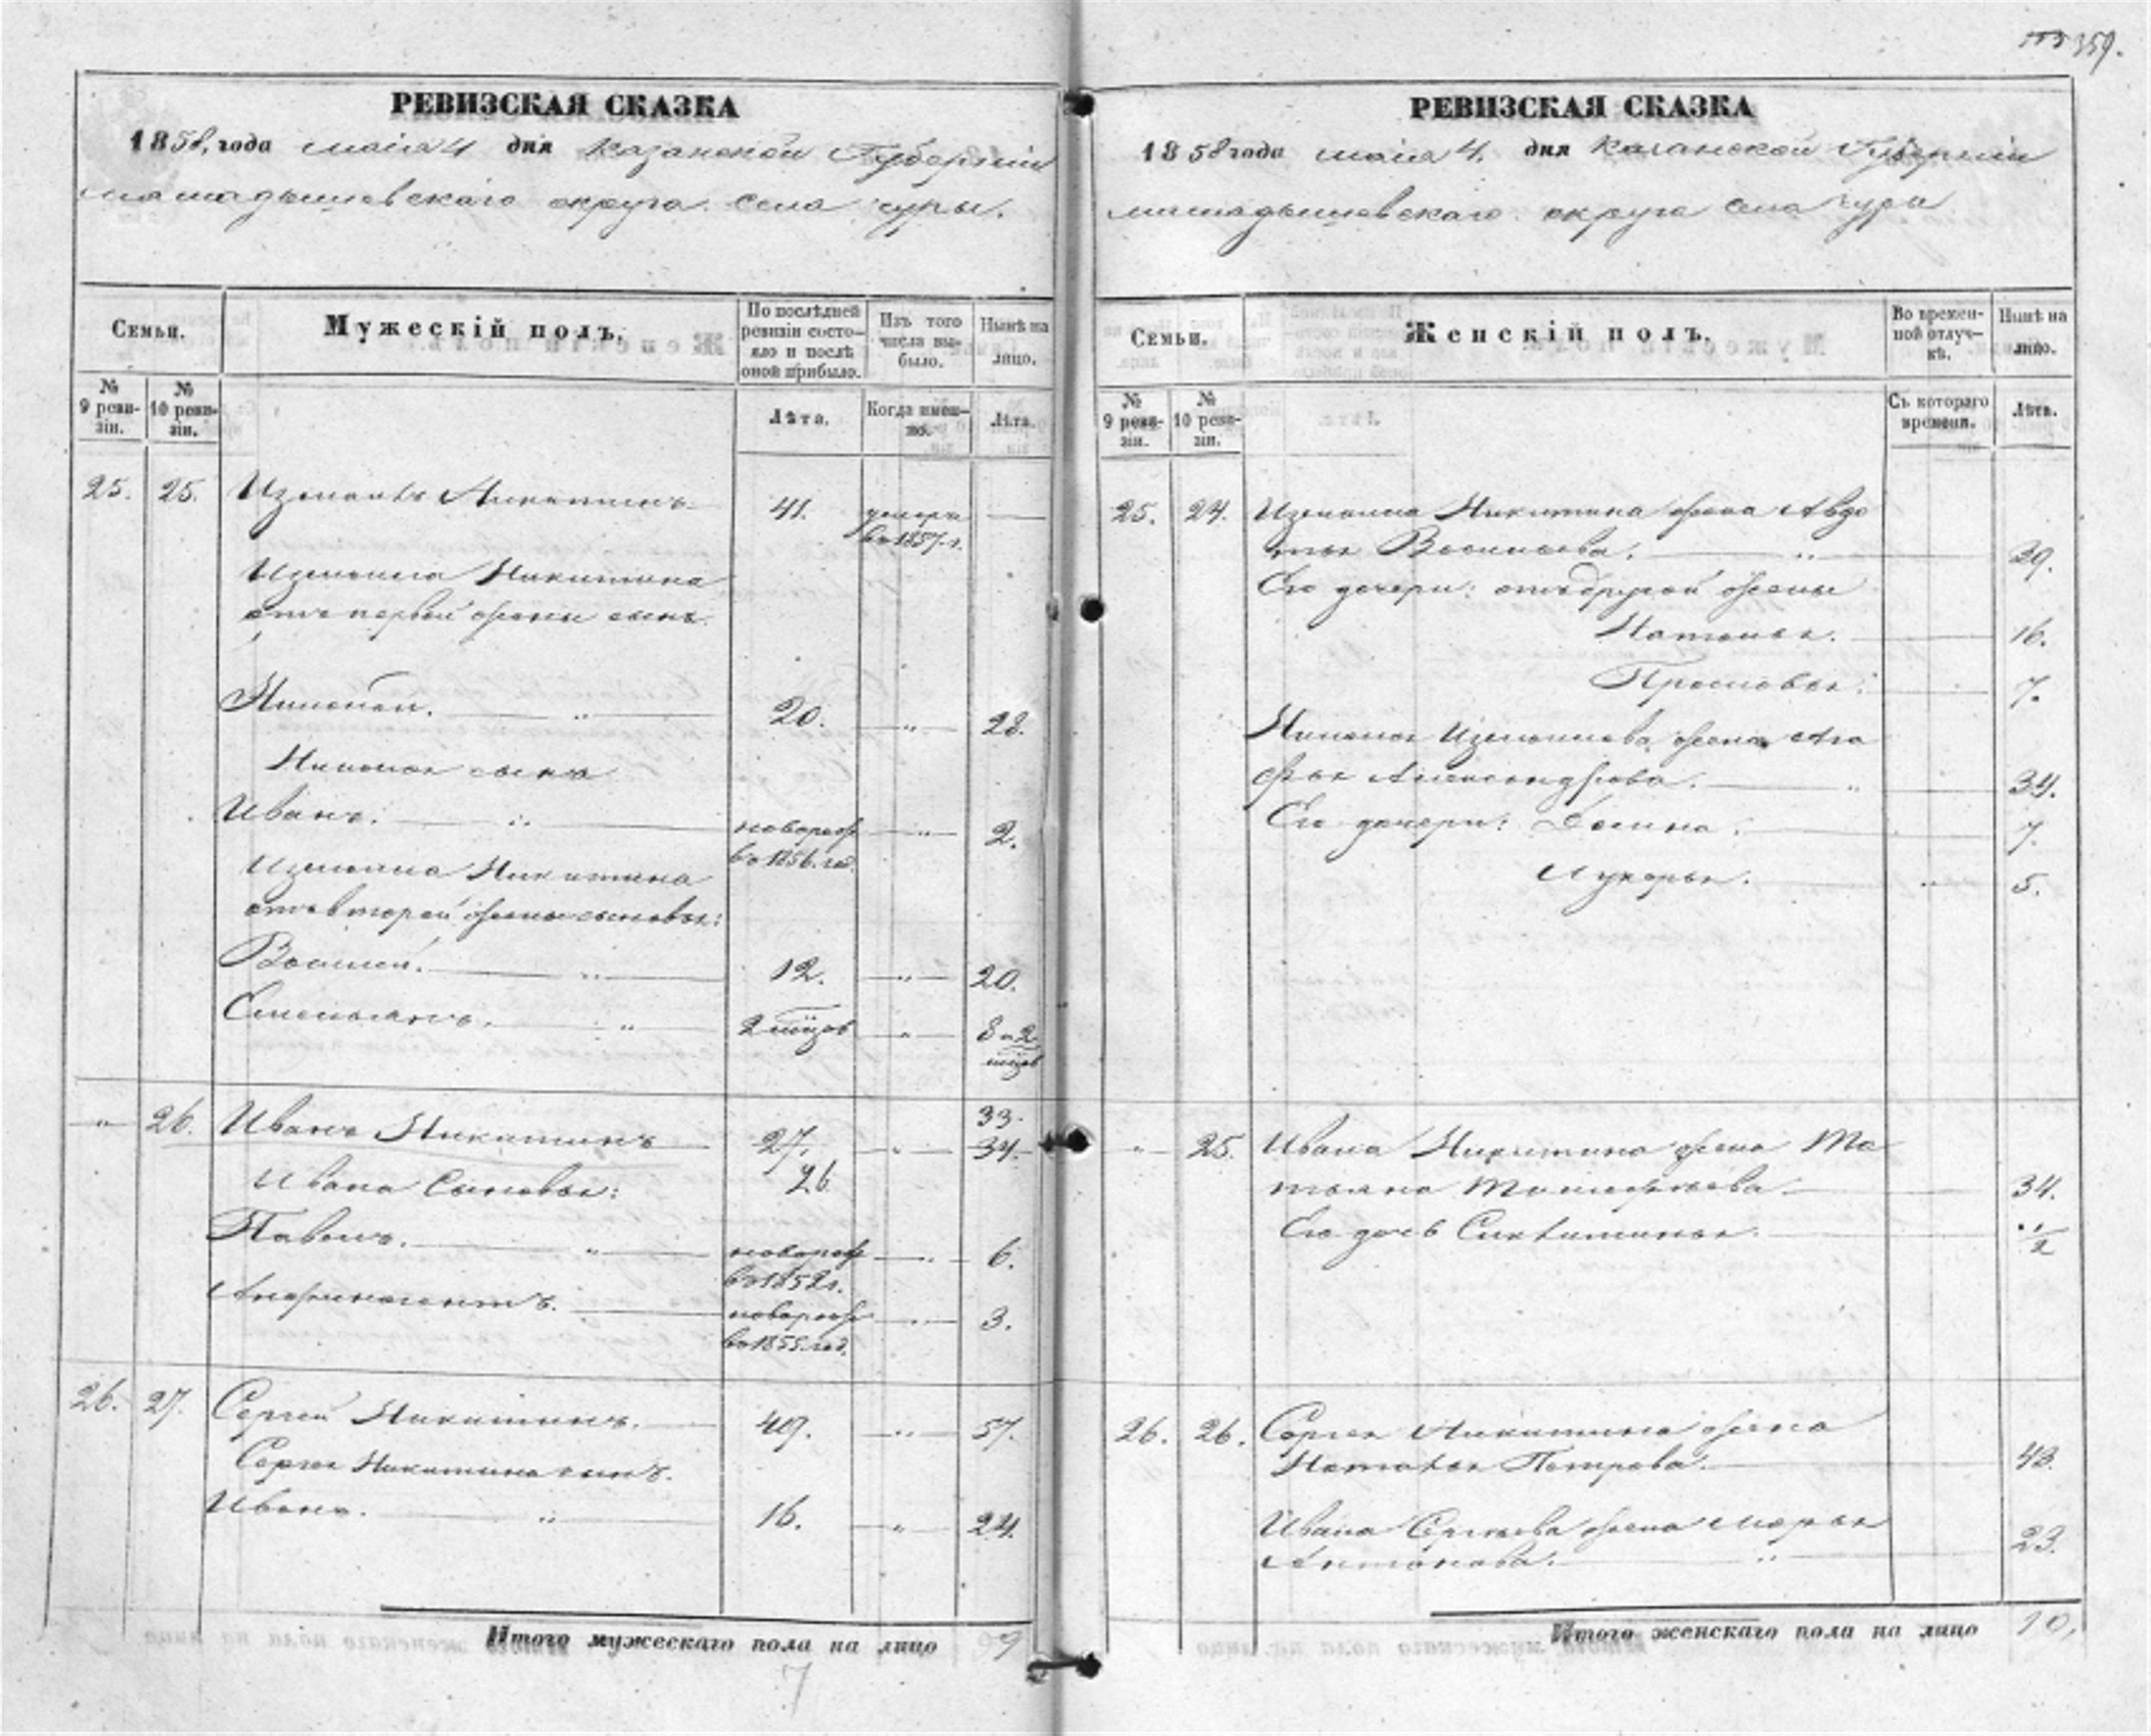 359.
РЕВИЗСКАЯ СКАЗКА
1858, года маія 4 дня Казанской Губерніи
мамадышевскаго округа села чуры.
Семьи.
Мужескій полъ.
По послѣдней ревизіи состояло и послѣ оной прибыло.
Изъ того числа выбыло.
Нынѣ на лицо.
№ 9 ревизіи.
№ 10 ревизіи.
Лѣта.
Когда именно.
Лѣта.
25. 25. Измаилъ Никитинъ 41. умеръ —
въ 1857. г.
Измаила Никитина
отъ первой жены сынъ
Николай. — " — 20. — " — 28.
Николая сынъ
Иванъ. — " — новорож — " — 2.
въ 1856. год
Измаила Никитина
отъ второй жены сыновья:
Василей. — " — 12. — " — 20.
Емельянъ. — " 2 мѣцов — " — 8 и 2
мѣцов
" 26. Иванъ Никитинъ 27. — " — 33.
34.
26
Ивана Сыновья:
Павелъ. — " — новорож — " — 6.
въ 1852 г.
новорож — " — 3.
въ 1855. год.
26. 27. Сергей Никитинъ. 49. — " — 57.
Сергея Никитина сынъ.
Иванъ. — " — 16. — " — 24.
Итого мужескаго пола на лицо 9
7
РЕВИЗСКАЯ СКАЗКА
1858 года маія 4. дня Казанской Губерніи
мамадышевскаго округа села чуры
Семьи.
Женскій полъ.
Во временной отлучкѣ.
Нынѣ на лицо.
№ 9 ревизіи.
№ 10 ревизіи.
Съ котораго времени.
Лѣта.
25. 24. Измаила Никитина жена Авдо
тья Васильева. — " — 39.
Его дочери: отъ другой жены
Наталья. — 16.
Прасковья. — 7.
Николая Измаилова жена Ага
фья Александрова. — " — 34.
Его дочери: Домна. — 7.
Лукерья. — " — 5.
" 25. Ивана Никитина жена Та
тьяна Тимофеева. — 34.
Его дочь — 1/2
26. 26. Сергея Никитина жена
Наталья Петрова. — 43.
Ивана Сергеева жена Марья
Антонова. — " — 23.
Итого женскаго пола на лицо 10,